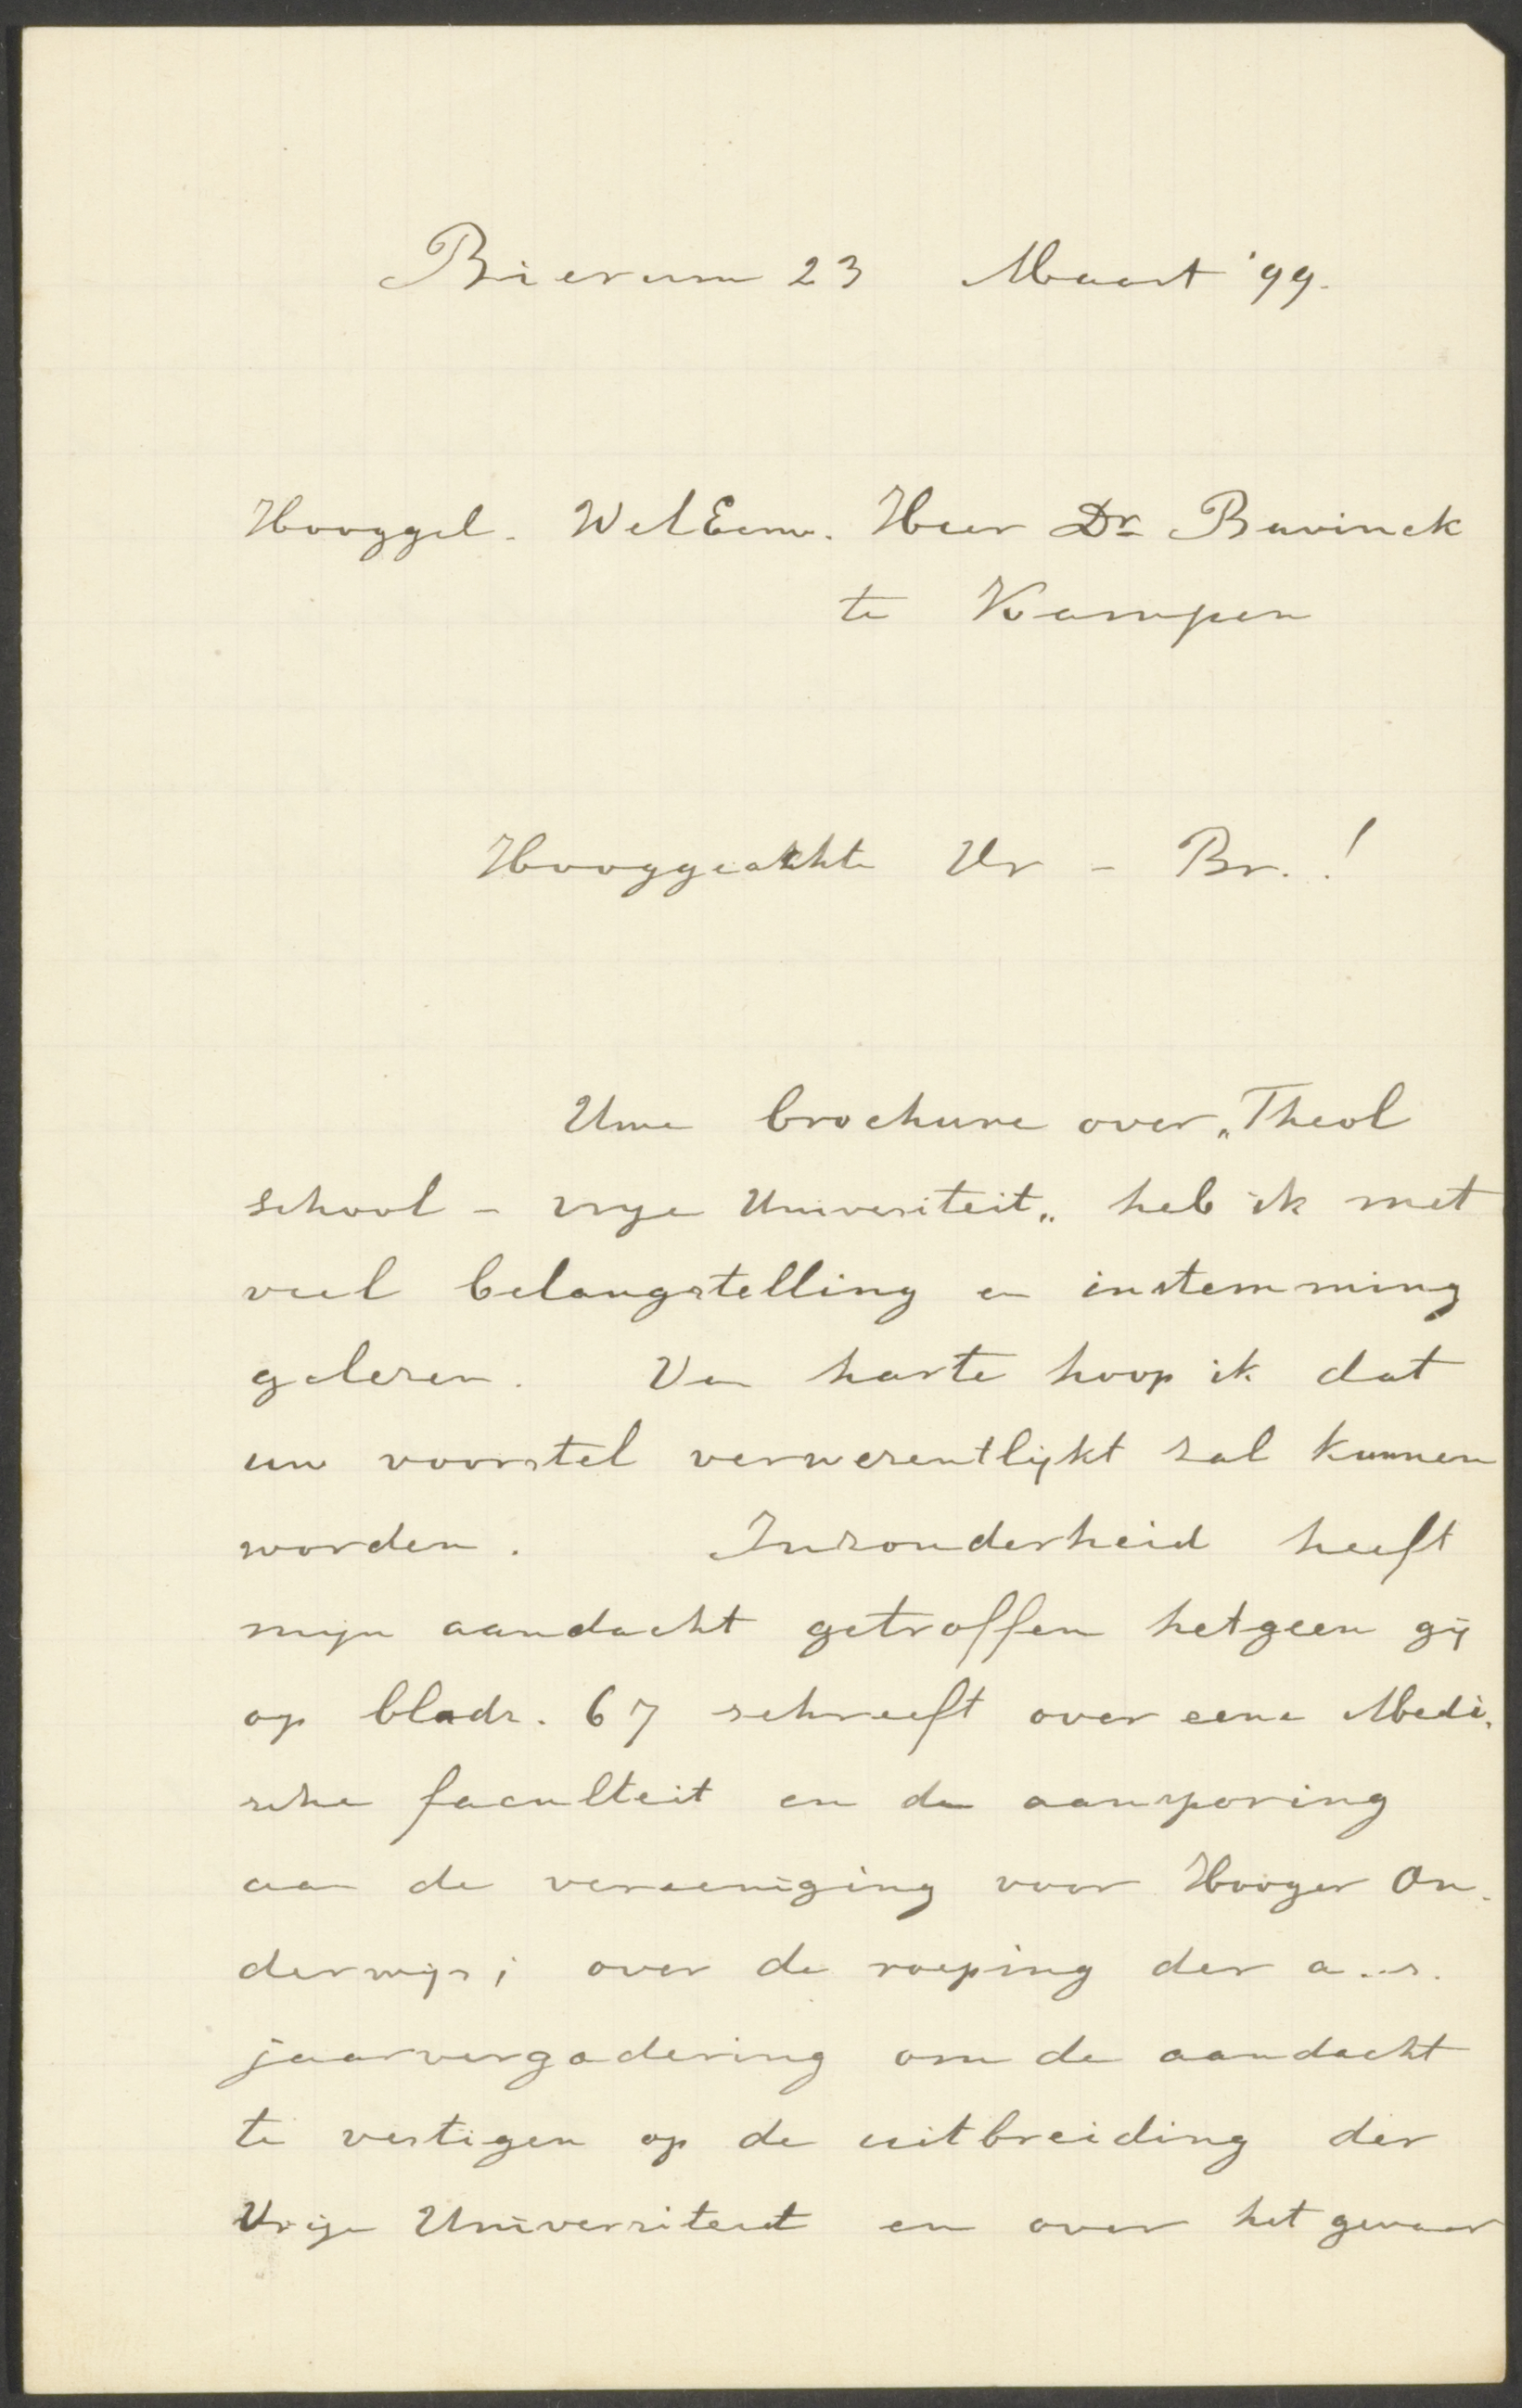 Bierum 23 Maart '99.
Hooggel. WelEerw. Heer Dr. Bavinck
te Kampen
Hooggeachte Vr - Br.!
Uwe brochure over „Theol
school - vrije Universiteit„ heb ik met
veel belangstelling en instemming
gelezen. Van harte hoop ik dat
uw voorstel verwezentlijkt zal kunnen
worden. Inzonderheid heeft
mijn aandacht getroffen hetgeen gij
op bladz. 67 schreeft over eene Medi-
sche faculteit en de aansporing
aan de vereeniging voor Hooger On-
derwijs; over de roeping der a.s.
jaarvergadering om de aandacht
te vestigen op de uitbreiding der
Vrije Universiteit en over het gevaar